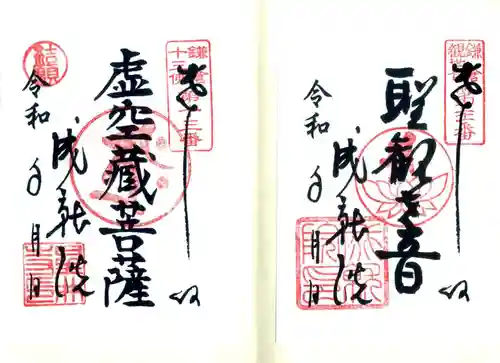 奉拝
聖観音
成就院
令和 年 月 日
鎌倉
十三佛
第十三番
奉拝
虚空蔵菩薩
成就院
令和 年 月 日
結願